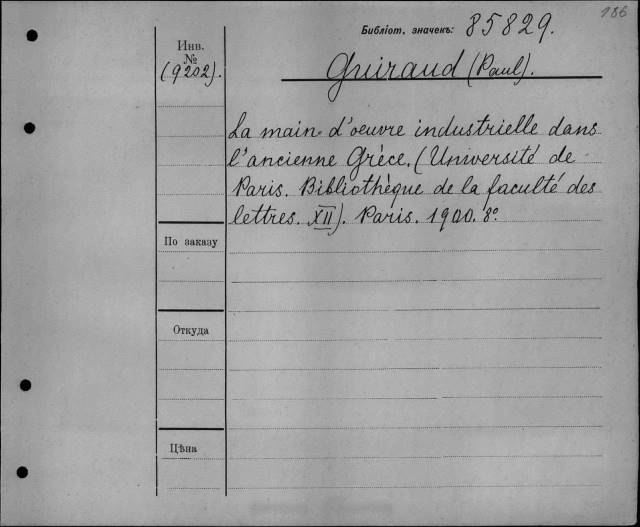 186
Библіот. значекъ: 85829.
Инв.
№
(9202).
Guiraud (Paul).
La main d'oeuvre industrielle dans
l'ancienne Grèce. (Université de
Paris. Bibliothèque de la faculté des
lettres. XII). Paris. 1900. 8º.
По заказу
Откуда
Цѣна